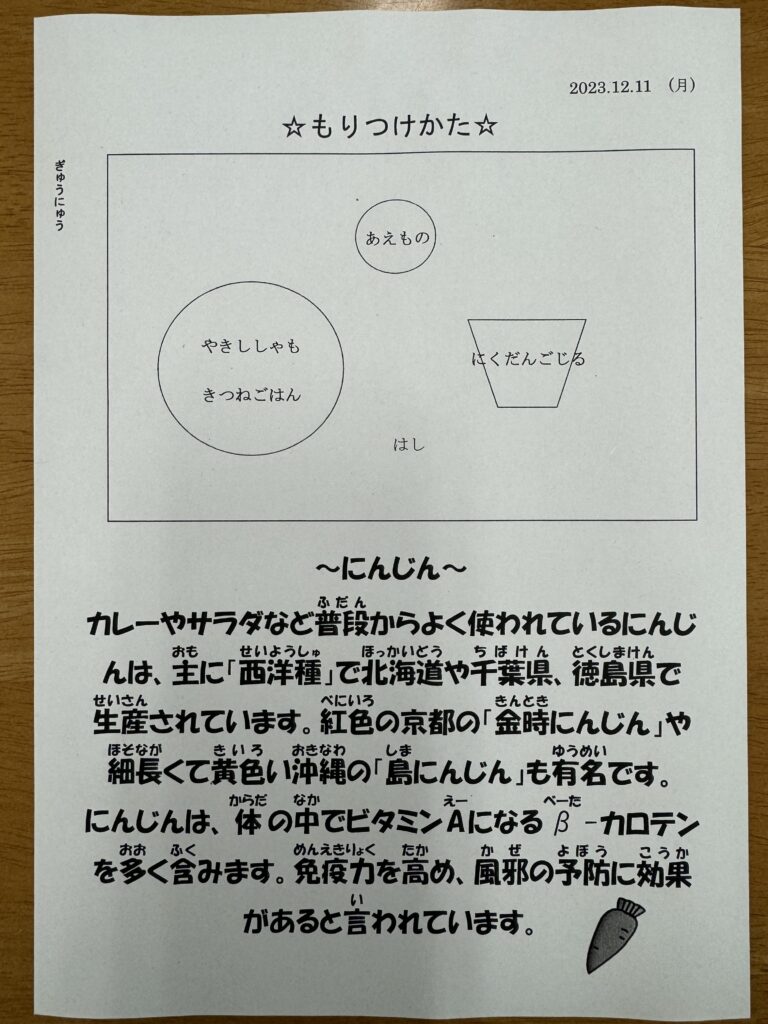 2023.12.11 （月）
☆もりつけかた☆
ぎゅうにゅう
あえもの
やきししゃも
きつねごはん
にくだんごじる
はし
～にんじん～
ふだん
カレーやサラダなど普段からよく使われているにんじ
おも せいようしゅ ほっかいどう ちばけん とくしまけん
んは、主に「西洋種」で北海道や千葉県、徳島県で
せいさん べにいろ きんとき
生産されています。紅色の京都の「金時にんじん」や
ほそなが きいろ おきなわ しま ゆうめい
細長くて黄色い沖縄の「島にんじん」も有名です。
からだ なか えー べーた
にんじんは、体の中でビタミンAになるβ-カロテン
おお ふく めんえきりょく たか かぜ よぼう こうか
を多く含みます。免疫力を高め、風邪の予防に効果
い
があると言われています。